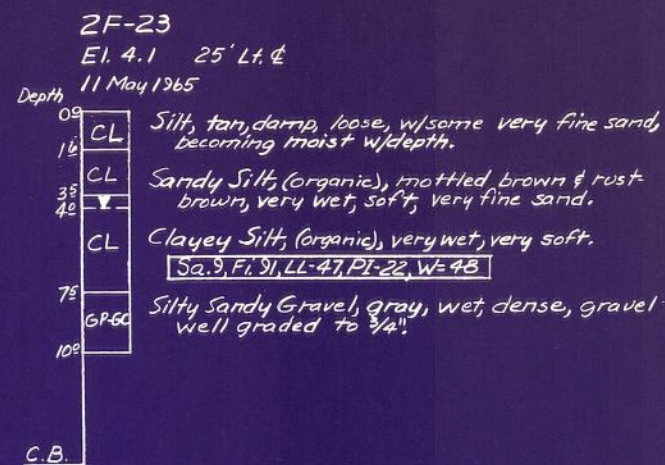 2F-23
El. 4.1 25' Lt. ℄
11 May 1965
Depth
0⁰
CL
Silt, tan, damp, loose, w/some very fine sand,
becoming moist w/depth.
CL
Sandy Silt, (organic), mottled brown & rust-
brown, very wet, soft, very fine sand.
3⁵
4⁰
CL
Clayey Silt, (organic), very wet, very soft.
Sa.9, Fi. 91, LL-47, PI-22, W=48
7⁵
GP-GC
Silty Sandy Gravel, gray, wet, dense, gravel
well graded to 3/4".
10⁰
C.B.